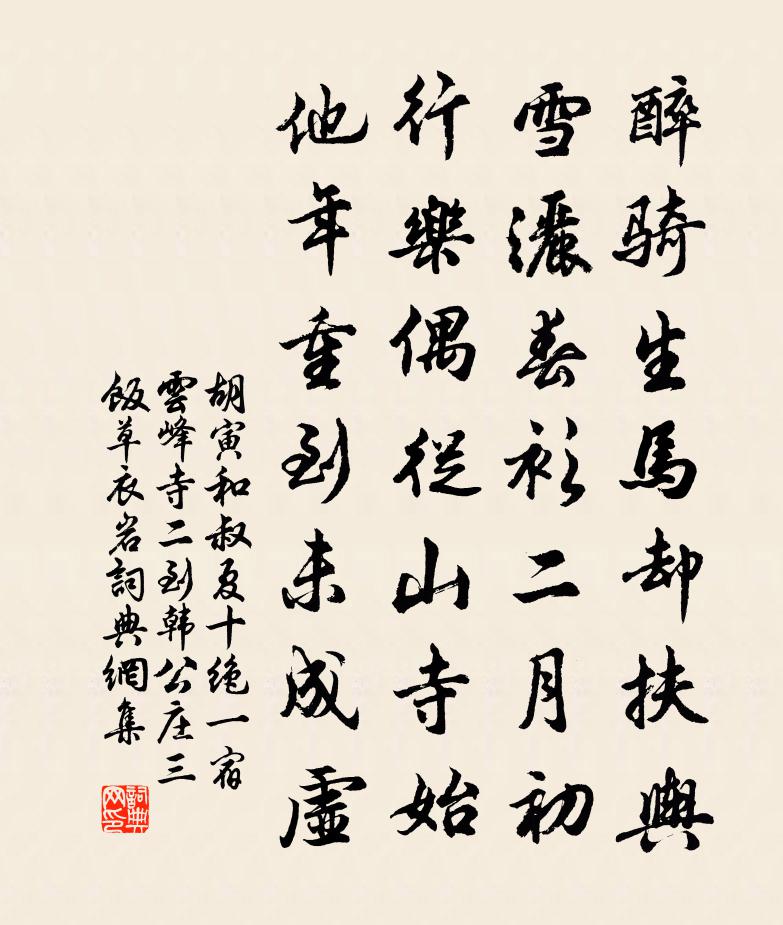 醉骑生馬却扶輿
雪灑春衫二月初
行樂偶從山寺始
他年重到未成虛
胡寅和叔夏十绝一宿
雲峰寺二到韩公庄三
飯草衣岩詞典網集
詞典网印